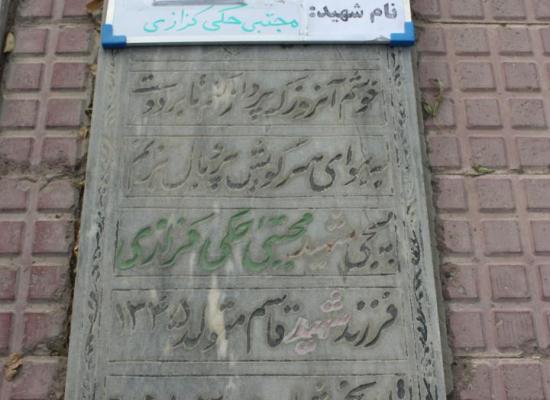 نام شهید: مجتبی حکی کزازی
خوش آنروز که پرواز کنم تا بر دوست
به هوای سر کویش پر و بال بزنم
بسیجی شهید مجتبی حکی کزازی
فرزند شهید قاسم متولد ۱۳۴۵